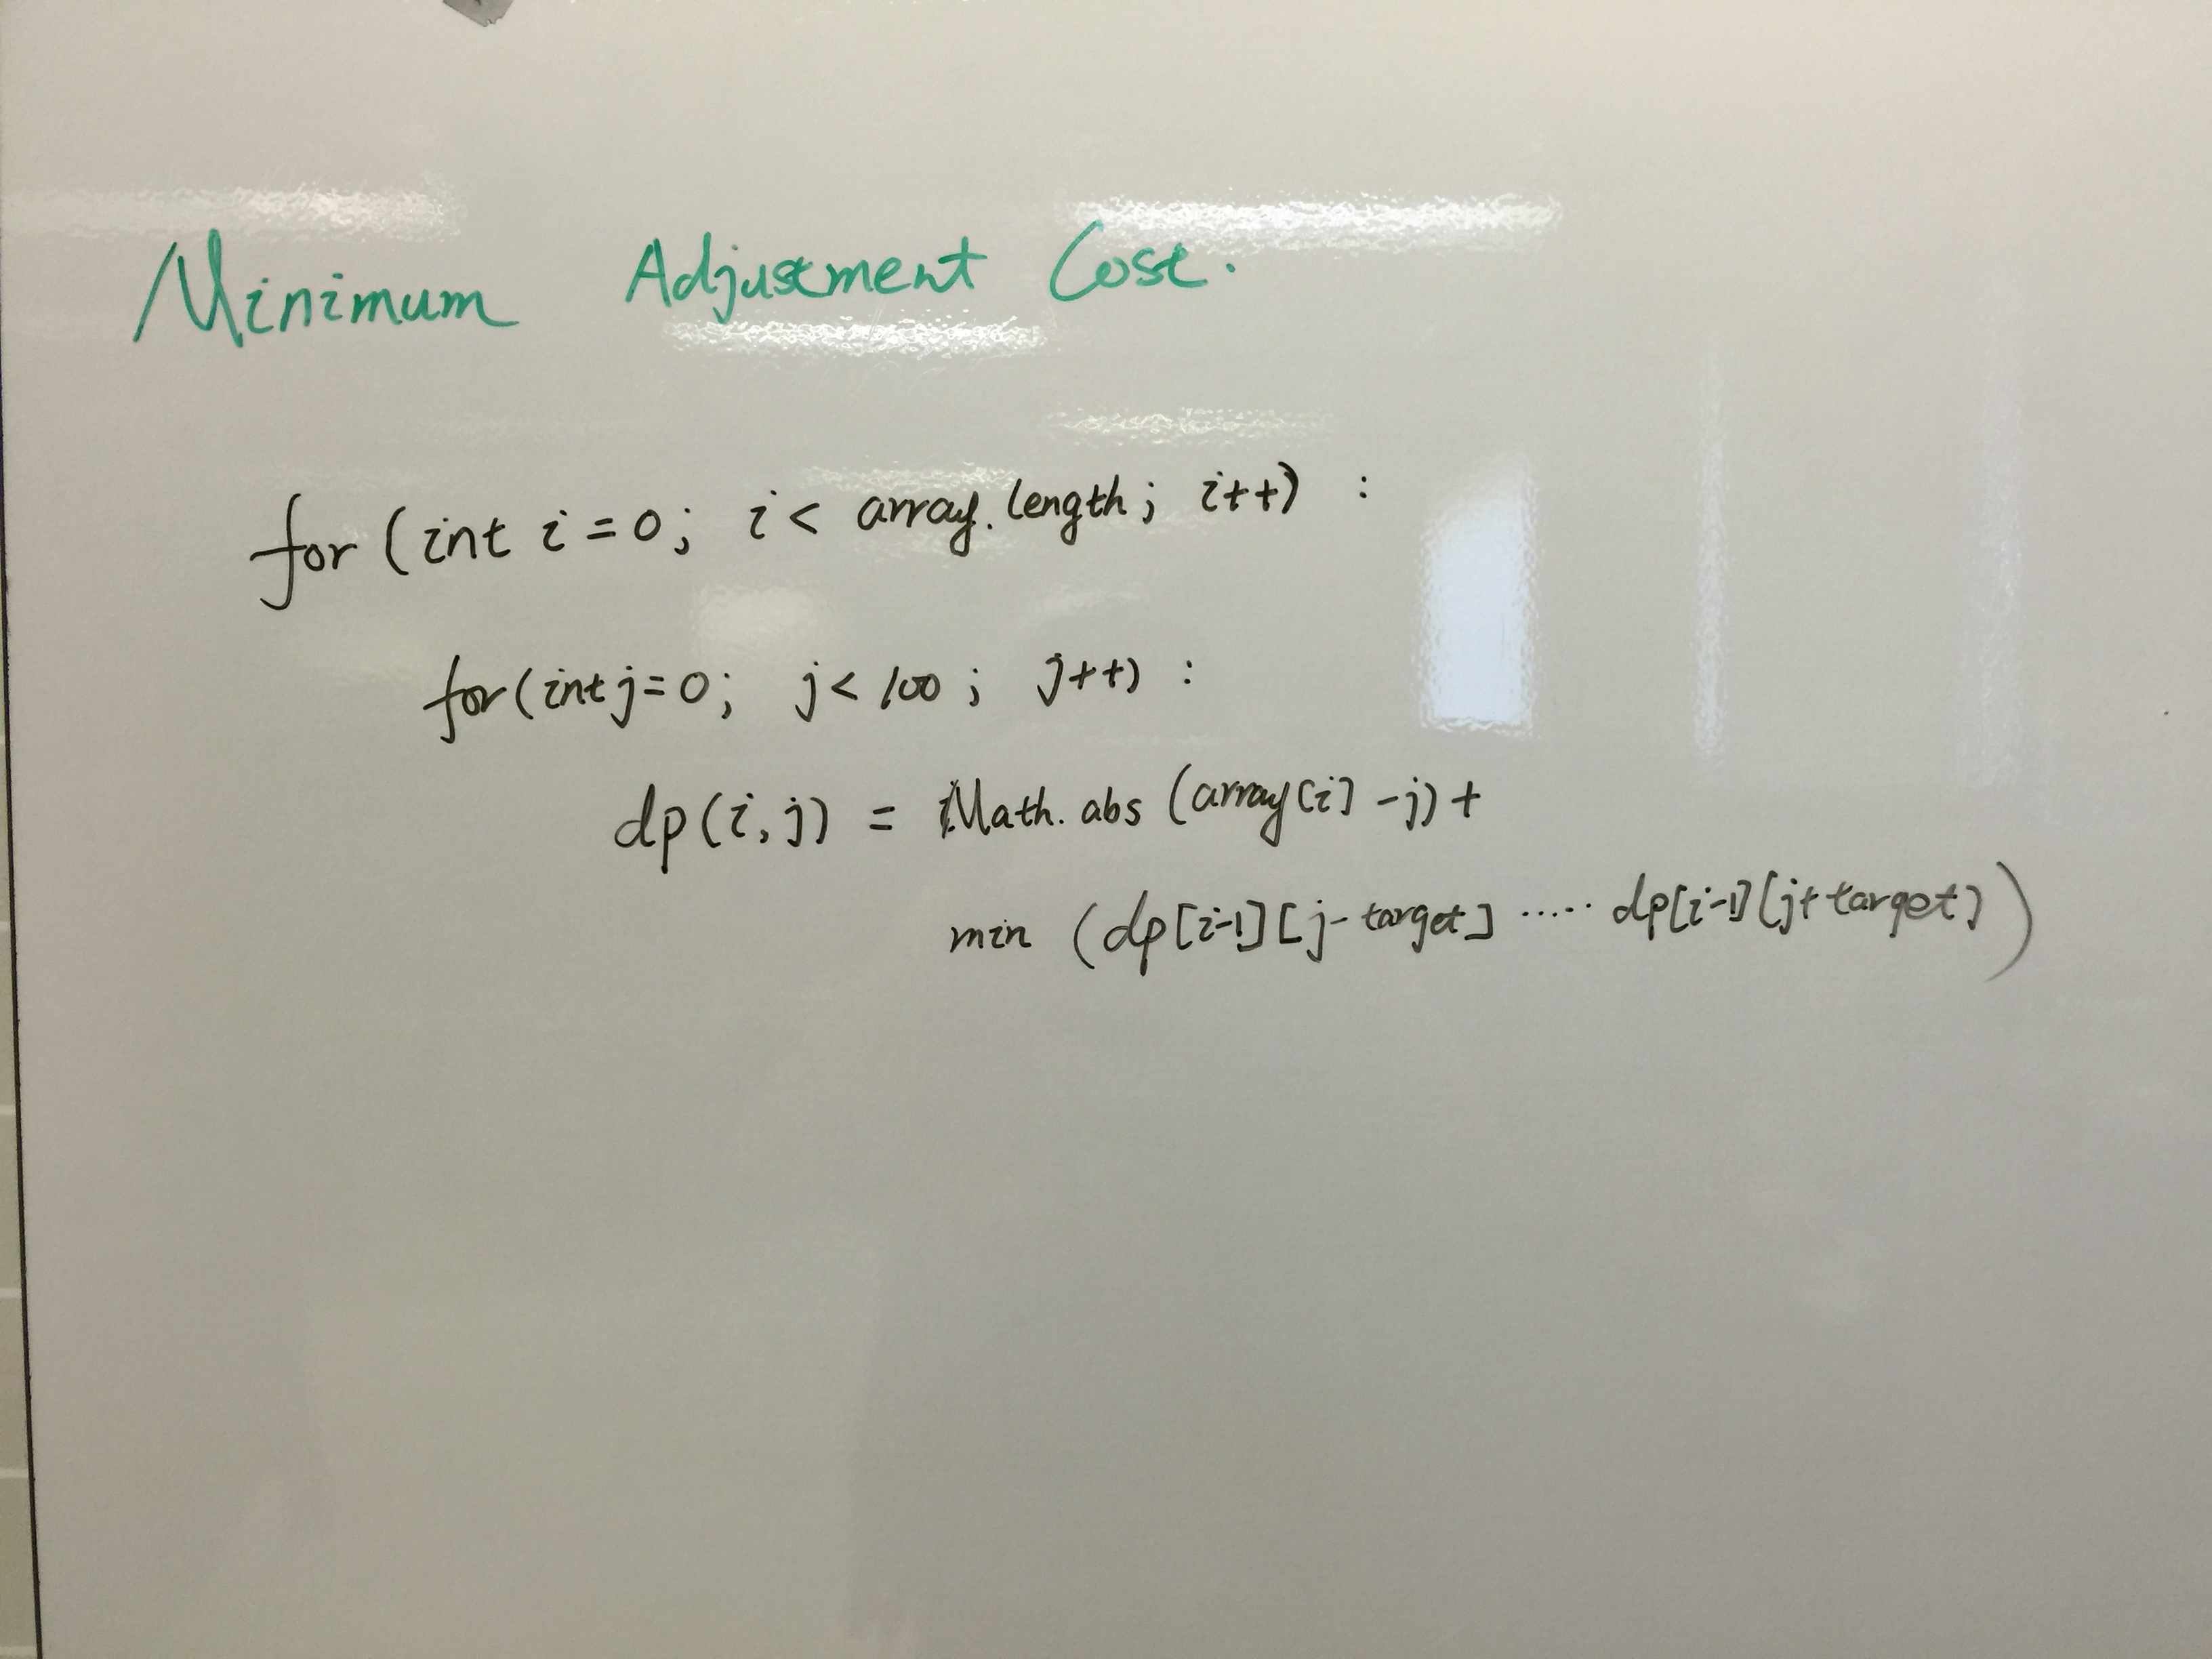 Minimum Adjustment Cost.
for (int i = 0; i < array.length; i++) :
for (int j = 0; j < 100; j++) :
dp(i, j) = Math.abs (array[i] - j) +
min (dp[i-1][j-target] ..... dp[i-1][j+target])